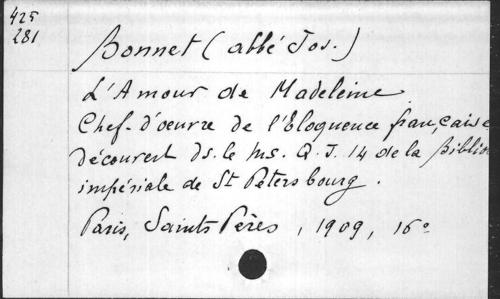 425
281
Bonnet (abbé Jos.)
L'Amour de Madeleine
Chef-d'oeuvre de l'Eloquence française
découvert ds. le ms. Q. I. 14 de la Biblio
impériale de St Pétersbourg.
Paris, Saints Pères, 1909, 16°